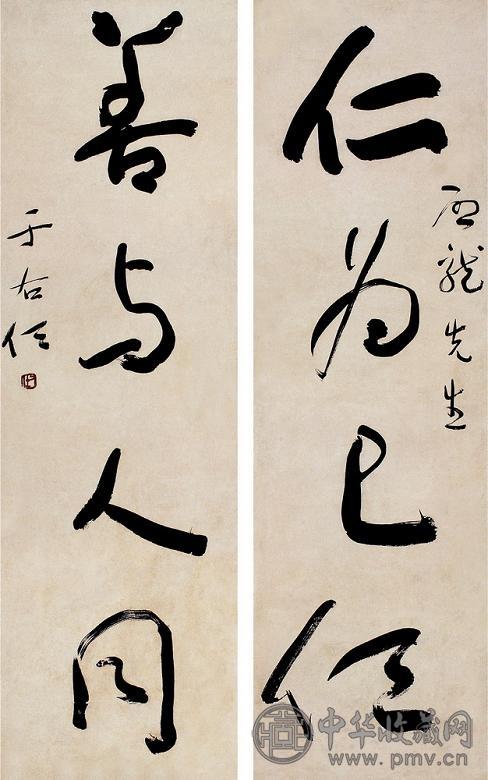 仁为己任
先生
善与人同
于右任
中华收藏网
www.pmv.cn